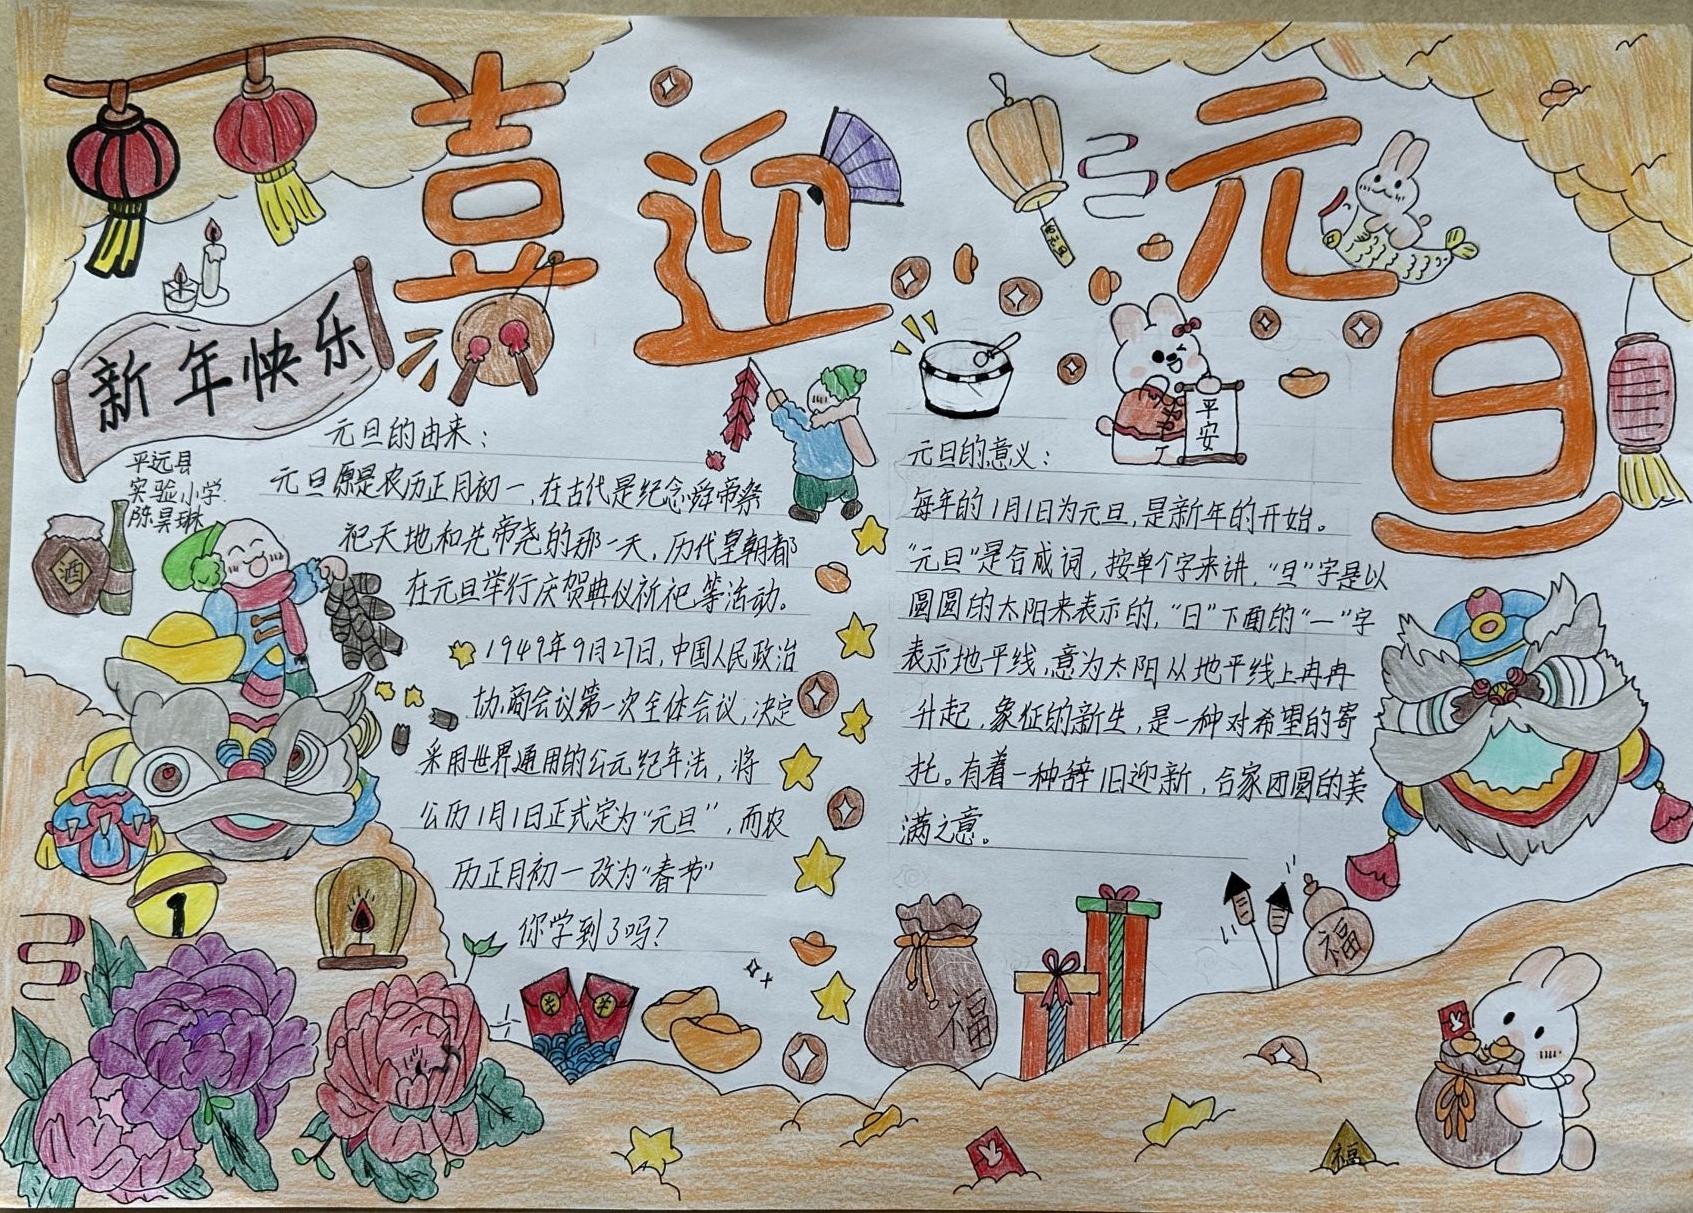 喜迎元旦
新年快乐
平远县
实验小学
陈昊琳
元旦的由来：
元旦原是农历正月初一，在古代是纪念舜帝祭
祀天地和先帝尧的那一天，历代皇朝都
在元旦举行庆贺典仪祈祀等活动。
1949年9月27日，中国人民政治
协商会议第一次全体会议，决定
采用世界通用的公元纪年法，将
公历1月1日正式定为“元旦”，而农
历正月初一改为“春节”
你学到了吗？
平安
元旦的意义：
每年的1月1日为元旦，是新年的开始。
“元旦”是合成词，按单个字来讲，“旦”字是以
圆圆的太阳来表示的，“日”下面的“一”字
表示地平线，意为太阳从地平线上冉冉
升起，象征的新生，是一种对希望的寄
托。有着一种辞旧迎新，合家团圆的美
满之意。
酒
福
福
福